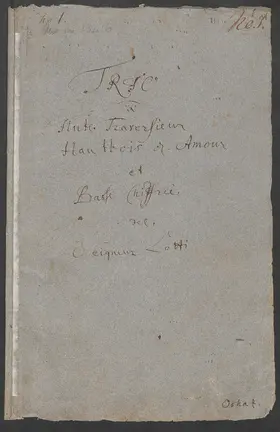 No 1.
No 1.
TRIO
a
Flute Traversieur
Hautbois d'Amour
et
Basse Chiffrée.
del
Seigneur Lotti